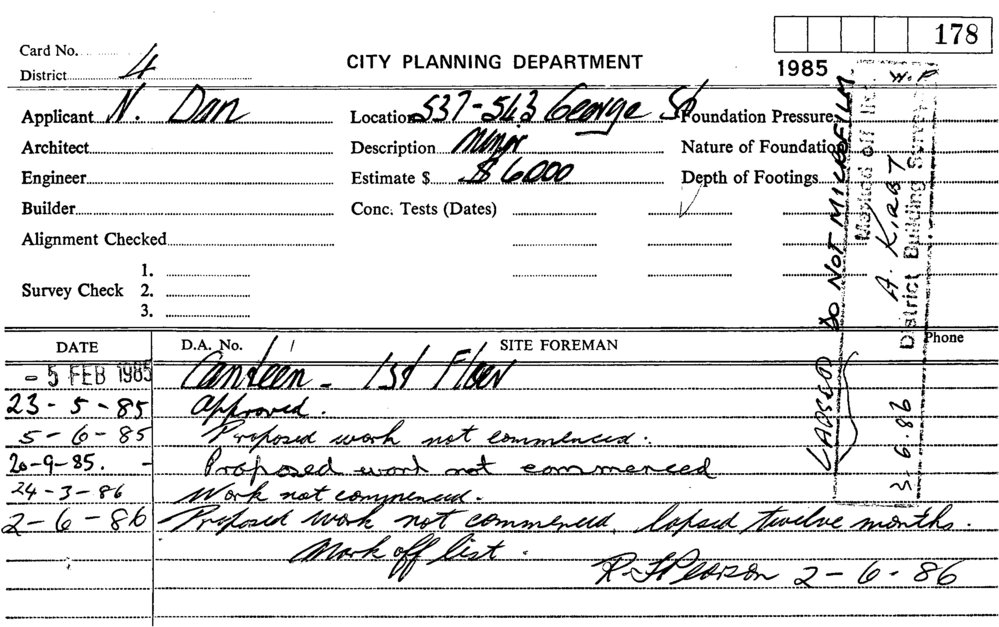 178
Card No.
CITY PLANNING DEPARTMENT
1985
District 4
Applicant N. Dan Location 537-543 George St Foundation Pressure
Architect Description Minor Nature of Foundation
Engineer Estimate $ $6000 Depth of Footings
Builder Conc. Tests (Dates)
Alignment Checked
1.
Survey Check 2.
3.
LAPSED DO NOT MICROFILM
Marked off list W.P
A. KIRBY
3.6.86 District Building Surveyor
DATE D.A. No. SITE FOREMAN Phone
- 5 FEB 1985 Canteen - 1st Floor
23-5-85 Approved.
5-6-85 Proposed work not commenced.
20-9-85. - Proposed work not commenced
24-3-86 Work not commenced.
2-6-86 Proposed work not commenced, lapsed twelve months.
Mark off list.
R. J Pearson 2-6-86